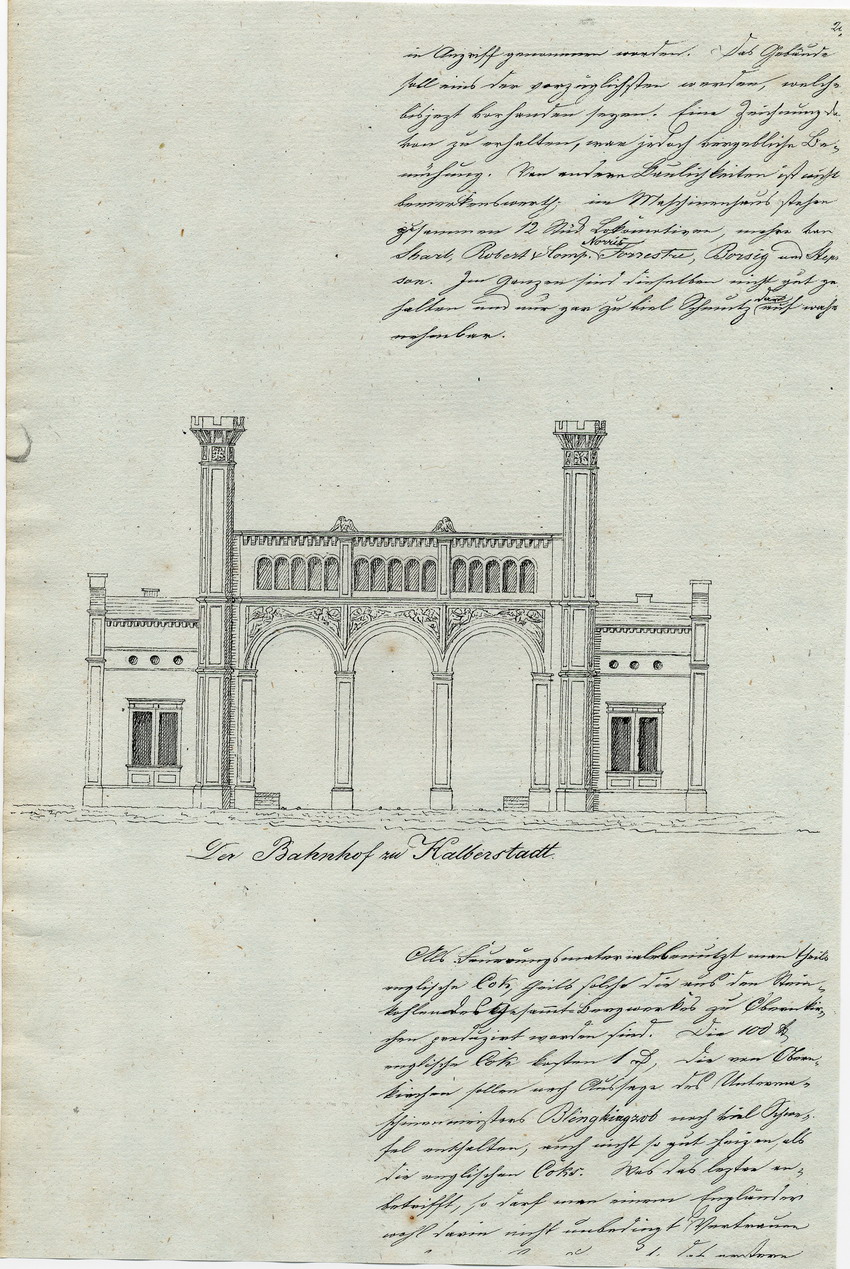 2.
in Angriff genommen worden. Das Gebäude
soll eins der vorzüglichsten werden, welche
bisjezt vorhanden seyen. Eine Zeichnung da-
von zu erhalten, war jedoch vergebliche Be-
mühung. Von andern Baulichkeiten ist nicht
bemerkenswerth; im Maschinenhaus stehen
zusammen 12 Stück Lokomotiven, mehre von
Sharp, Robert & Comp. Norris, Forrester, Borsig und Step-
son. Im Ganzen sind dieselben nicht gut ge-
halten und nur gar zu viel Schmutz darauf wahr
nehmbar.
Der Bahnhof zu Halberstadt.
Als Feuerungsmaterial benutzt man theils
englische Cok, theils solche die aus den Stein-
kohlen des Gesammt-Bergwerkes zu Obernkir-
chen produzirt worden sind. Die 100 ℔
englische Cok kosten 1 die von Obern-
kirchen sollen nach Aussage des Unterma-
schinenmeisters Blengkingzob noch viel Schwe-
fel enthalten, auch nicht so gut heizen, als
die englischen Coks. Was das leztre an-
betrifft, so darf man einem Engländer
wohl darin nicht unbedingt Vertrauen
das andere